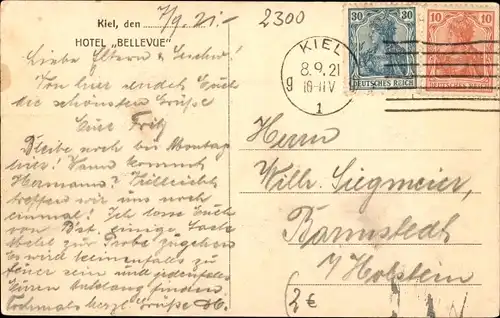 Kiel, den 7/9. 21.-
HOTEL „BELLEVUE"
2300
Liebe Eltern & Geschw!
Von hier sendet Euch
die schönsten Grüße
Eure Fritz
Bleibe noch bis Montag
hier! Wann kommt
Hermann? Vielleicht
treffen wir uns noch
einmal! Ich lasse Euch
von einige
zur Probe zugehen
Es wird
sein und jedenfalls
Anklang finden.
Nochmals herzl. Grüße
KIEL
8.9.21
g
1
30 30
DEUTSCHES REICH
10 10
DEUTSCHES REICH
Herrn
Wilh. Siegmeier,
Barmstedt
i/Holstein
2€